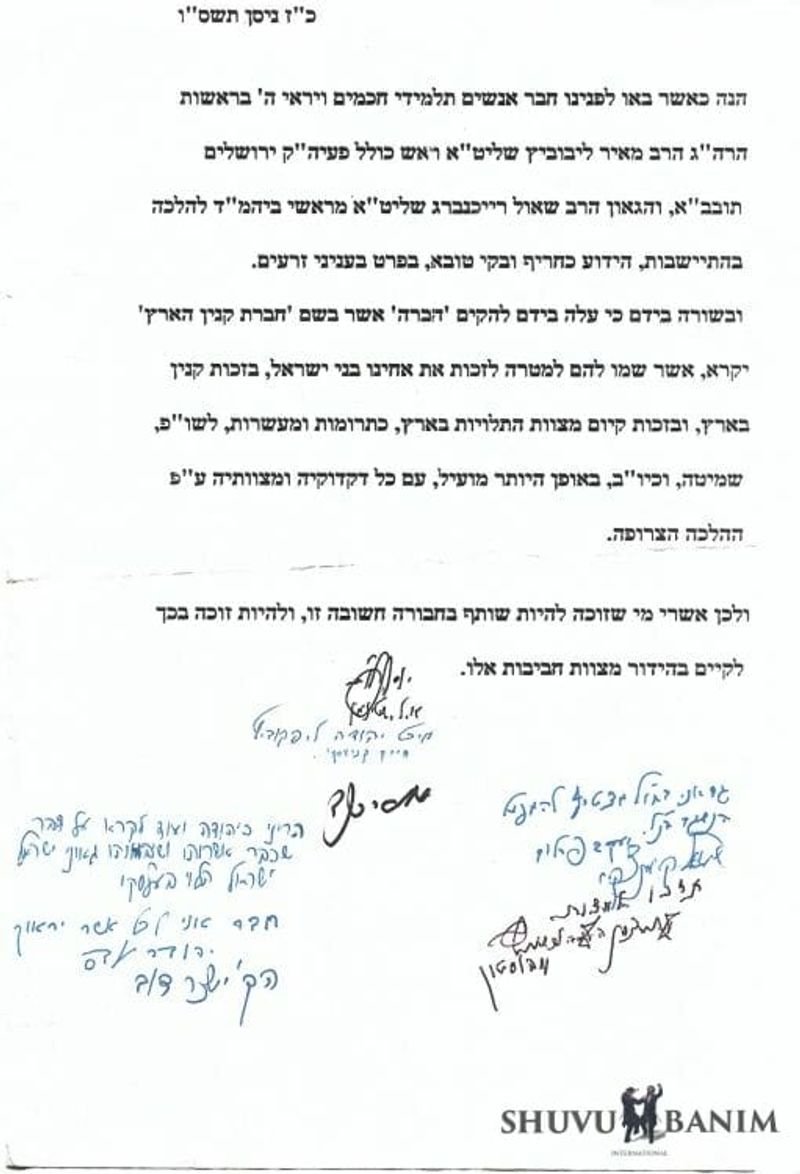 כ"ז ניסן תשס"ו
הנה כאשר באו לפנינו חבר אנשים תלמידי חכמים ויראי ה' בראשות
הרה"ג הרב מאיר ליבוביץ שליט"א ראש כולל פעיה"ק ירושלים
תובב"א, והגאון הרב שאול רייכנברג שליט"א מראשי ביהמ"ד להלכה
בהתיישבות, הידוע כחריף ובקי טובא, בפרט בעניני זרעים.
ובשורה בידם כי עלה בידם להקים 'חברה' אשר בשם 'חברת קנין הארץ'
יקרא, אשר שמו להם למטרה לזכות את אחינו בני ישראל, בזכות קנין
בארץ, ובזכות קיום מצוות התלויות בארץ, כתרומות ומעשרות, לשו"פ,
שמיטה, וכיו"ב, באופן היותר מועיל, עם כל דקדוקיה ומצוותיה ע"פ
ההלכה הצרופה.
ולכן אשרי מי שזוכה להיות שותף בחבורה חשובה זו, ולהיות זוכה בכך
לקיים בהידור מצוות חביבות אלו.
מיכל יהודה ליפקוביץ
חיים קניבסקי
הריני כיהודה ועוד לקרא על דבר
שכבר אשרוהו ושבחוהו גאוני ישראל
חבר אני לכל אשר יראוך
SHUVU BANIM
INTERNATIONAL